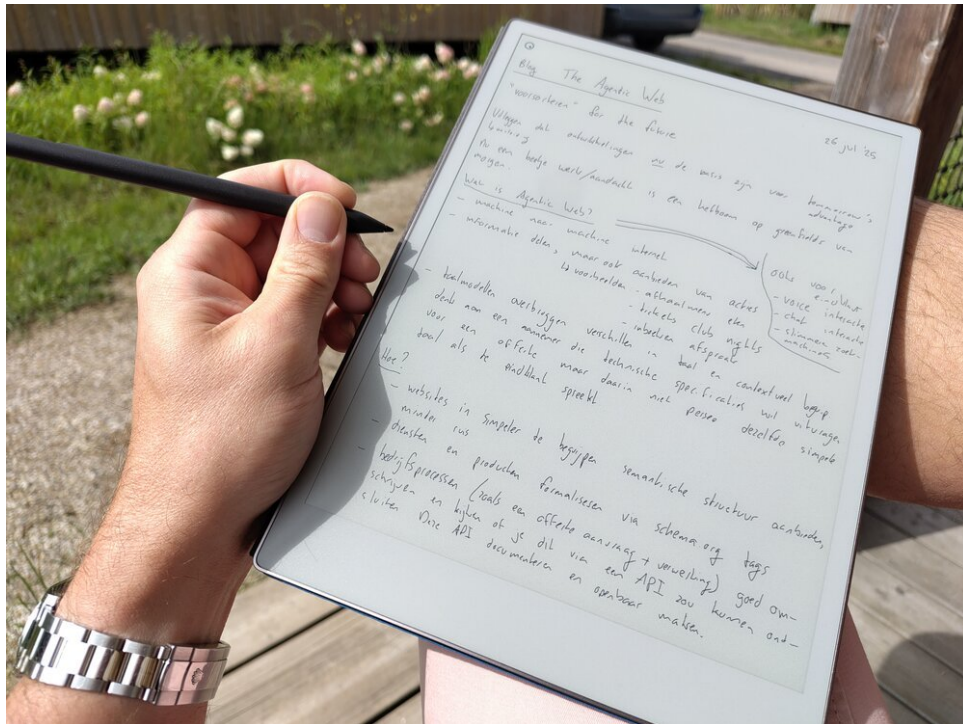 Blog The Agentic Web
26 jul '25
"voorsorteren" for the future
Vroegen dat ontwikkelingen nu de basis zijn voor tomorrow's
advantage
Nu een beetje werk/aandacht is een hefboom op greenfields van
morgen.
Wat is Agentic Web?
- machine naar machine internet
- informatie delen, maar ook aanbieden van acties
bijvoorbeelden - afhaalmens eten
- tickets club nights
- inboeken afspraak
ook voor
- voice interactie
- chat interactie
- slimmere zoek-
machines
- taalmodellen overbruggen verschillen in taal en contextueel begrip
denk aan een aannemer die technische specificaties wil uitvragen
voor een offerte maar daarin niet persee dezelfde simpele
taal als de eindklant spreekt
Hoe?
- websites in simpeler te begrijpen semantische structuur aanbieden,
minder ruis
- diensten en producten formaliseren via schema.org tags
- bedrijfsprocessen (zoals een offerte aanvraag + verwerking) goed om-
schrijven en kijken of je dit via een API zou kunnen ont-
sluiten Deze API documenteren en openbaar maken.